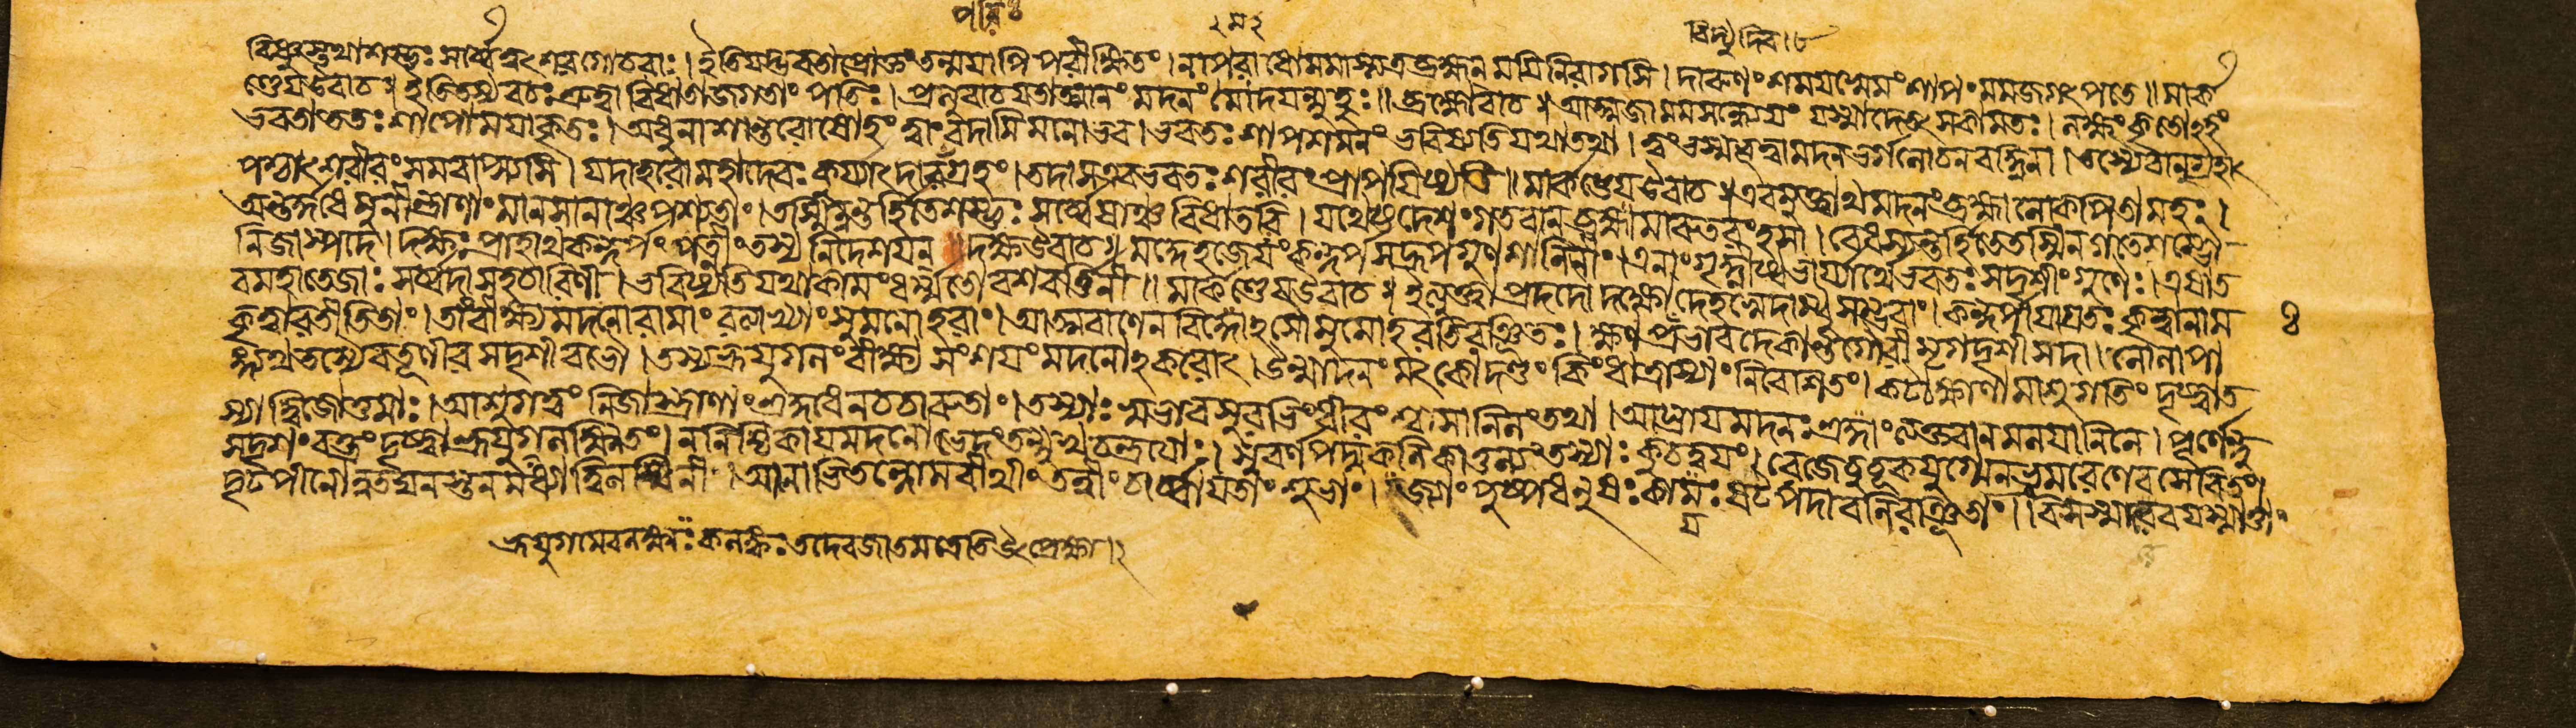 বিষ্ণুস্তথাশম্ভুঃ সর্ব্বেত্বৎশরগোচরাঃ । ইতিযদ্ভবতাপ্রোক্তং তন্ময়াপি পরীক্ষিতং । নাপরাধোমমাস্ত্যত্রব্রহ্মন্ময়িনিরাগসি । দারুণং শময়স্বেমং শাপং মমজগৎপতে ॥ মার্ক
ণ্ডেয়উবাচ ॥ ইতিতস্যবচঃ শ্রুত্বা বিধাতাজগতাং পতিঃ । প্রত্যুবাচযতাত্মানং মদনং মোদয়ন্মুহুঃ ॥ ব্রহ্মোবাচ ॥ আত্মজামমসন্ধ্যেয়ং যস্মাদেতৎসকামতঃ । লক্ষ্যংকৃতোঽহং
ভবতাততঃ শাপোময়াকৃতঃ । অধুনাশান্তরোষোঽহং ত্বাংবদামিমনোভব । ভবতঃ শাপশমনং ভবিষ্যতিযথাতথা । ত্বংভস্মভূত্বামদনভর্গলোচনবহ্নিনা । তস্যৈবানুগ্রহাৎ
পশ্চাৎশরীরং সমবাপ্স্যসি । যদাহরোমহাদেবঃ কর্য্যাৎদারগ্রহং । তদাসএবভবতঃ শরীরংপ্রাপয়িষ্যতি ॥ মার্কণ্ডেয়উবাচ ॥ এবমুক্ত্বাথমদনংব্রহ্মালোকপিতামহঃ ।
অন্তর্দ্দধেমুনীন্দ্রাণাং মানসানাঞ্চপশ্যতাং । তস্মিন্নন্তর্হিতেশম্ভুঃ সর্ব্বেষাঞ্চবিধাতরি । যথেষ্টদেশংগতবান্ব্রহ্মামারুতরংহসা । বেধস্যন্তর্হিতেতস্মিন্গতেশম্ভৌ
নিজাস্পদে । দক্ষঃ প্রাহাথকন্দর্পং পত্নীং তস্য নিদেশয়ন্ ॥ দক্ষউবাচ ॥ মদ্দেহজেয়ংকন্দর্পসদ্রূপগুণশালিনী । এনাংগৃহ্ণীষ্বভার্য্যার্থেভবতঃ সদৃশীংগুণৈঃ । এষাত
বমহাতেজাঃ সর্ব্বদাসহচারিণী । ভবিষ্যতিযথাকামংধর্ম্মতোবশবর্ত্তিনী ॥ মার্কণ্ডেয়উবাচ ॥ ইত্যুক্ত্বাপ্রদদৌদক্ষোদেহস্বেদাম্বুসম্ভবাং । কন্দর্পায়াগ্রতঃ কৃত্বানাম
কৃত্বারতীতিতাং । তাংবীক্ষ্যমদনোরামাং রত্যাখ্যাং সুমনোহরাং । আত্মবাণেনবিদ্ধোঽসৌমুমোহরতিরঞ্জিতঃ । ক্ষণপ্রভাবদেকান্তগৌরীমৃগদৃশীসদা । লোলাপা
ঙ্গ্যথতস্যৈবমৃগীবসদৃশীবভৌ । তস্যাভ্রূযুগলংবীক্ষ্য সংশয়ং মদনোঽকরোৎ । উন্মাদনং মৎকোদণ্ডং কিংধাত্রাস্যাং নিবেশিতং । কটাক্ষাণামাশুগতিং দৃষ্ট্বাত
স্যাদ্বিজোত্তমাঃ । আশুগত্বং নিজাস্ত্রাণাং শ্রদ্দধেনচচারুতাং । তস্যাঃ স্বভাবসুরভিংধীরং শ্বাসানিলংতথা । আঘ্রায়মদনঃ শ্রদ্ধাংত্যক্তবান্মলয়ানিলে । পূর্ণেন্দু
সদৃশং বক্ত্রং দৃষ্ট্বাভ্রূযুগলক্ষ্মিতং । ননিশ্চিকায়মদনোভেদংতন্মুখচন্দ্রয়োঃ । সুবর্ণপদ্মকলিকাতুল্যংতস্যাঃ কুচদ্বয়ং । রেজেচুচূকযুগ্মেনভ্রমরেণেবসেবিতং
দৃঢপীনোন্নতঘনস্তনমধ্যাদ্বিলম্বিনীং । আনাভিতল্লোমবীথীং তন্বীং চার্ব্বায়তাং শুভাং । জ্যাংপুষ্পধনুষঃ কামঃ ষট্পদাবলিরঞ্জিতাং । বিসস্মারচযস্মাত্তাং